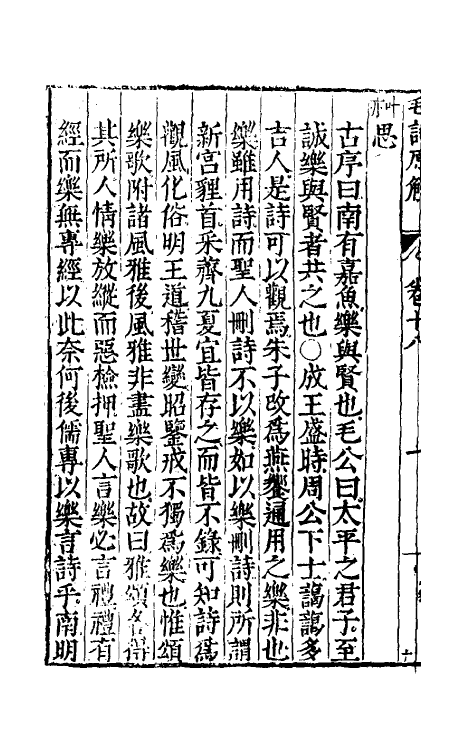 毛詩原解 卷十八
叶
思
古序曰南有嘉魚樂與賢也毛公曰太平之君子至
誠樂與賢者共之也○成王盛時周公下士藹藹多
吉人是詩可以觀焉朱子改爲燕饗通用之樂非也
樂雖用詩而聖人刪詩不以樂如以樂刪詩則所謂
新宮貍首采薺九夏宜皆存之而皆不錄可知詩爲
觀風化俗明王道稽世變昭鑒戒不獨爲樂也惟頌
樂歌附諸風雅後風雅非盡樂歌也故曰雅頌各得
其所人情樂放縱而惡檢押聖人言樂必言禮禮有
經而樂無專經以此奈何後儒專以樂言詩乎南明